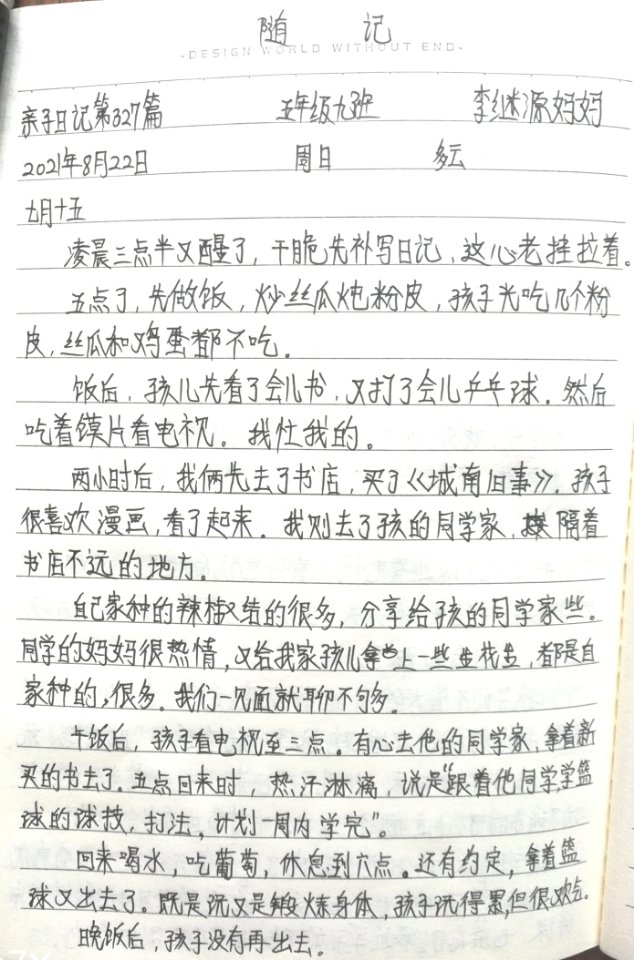 随 记
-DESIGN WORLD WITHOUT END-
亲子日记第327篇 五年级九班 李继源妈妈
2021年8月22日 周日 多云
七月十五
凌晨三点半又醒了，干脆先补写日记，这心老挂拉着。
五点了，先做饭，炒丝瓜炖粉皮，孩子光吃几个粉
皮，丝瓜和鸡蛋都不吃。
饭后，孩儿先看了会儿书，又打了会儿乒乓球。然后
吃着馍片看电视。我忙我的。
两小时后，我俩先去了书店，买了《城南旧事》。孩子
很喜欢漫画，看了起来。我则去了孩的同学家，隔着
书店不远的地方。
自己家种的辣椒又结的很多，分享给孩的同学家些。
同学的妈妈很热情，又给我家孩儿拿上一些生花生，都是自
家种的，很多。我们一见面就聊不够多。
午饭后，孩子看电视至三点。有心去他的同学家，拿着新
买的书去了。五点回来时 热汗淋漓，说是“跟着他同学学篮
球的球技，打法，计划一周内学完”。
回来喝水，吃葡萄，休息到六点。还有约定，拿着篮
球又出去了。既是玩又是锻炼身体，孩子玩得累，但很欢乐。
晚饭后，孩子没有再出去。